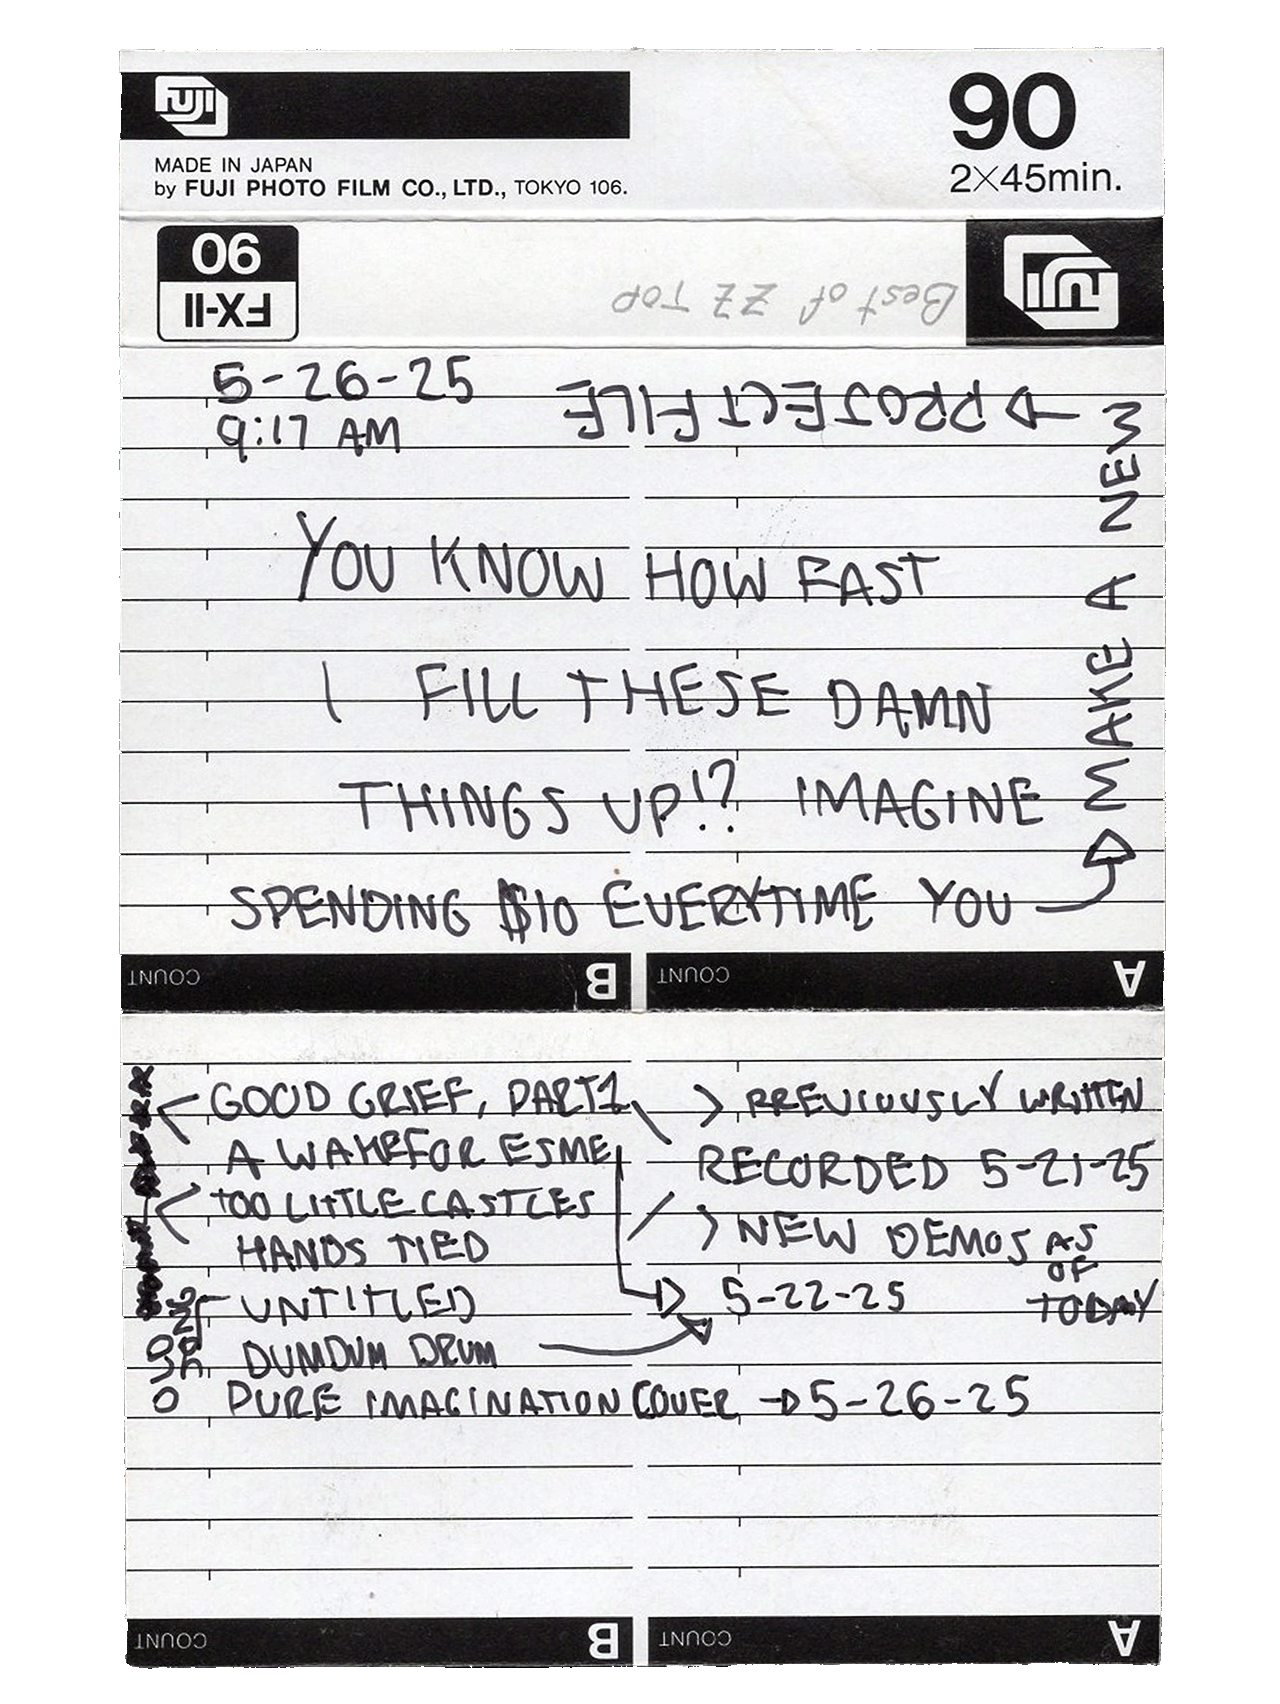 FUJI
90
MADE IN JAPAN
by FUJI PHOTO FILM CO., LTD., TOKYO 106.
2×45min.
90
FX-II
Best of ZZ TOP
FUJI
5-26-25
9:17 AM
YOU KNOW HOW FAST
I FILL THESE DAMN
THINGS UP!? IMAGINE
SPENDING $10 EVERYTIME YOU
MAKE A NEW
PROJECT FILE
COUNT B COUNT A
GOOD GRIEF, PART 1 > PREVIOUSLY WRITTEN
A WAKE FOR ESME RECORDED 5-21-25
TOO LITTLE CASTLES > NEW DEMOS AS
HANDS TIED OF
UNTITLED 5-22-25 TODAY
DUMDUM DRUM
PURE IMAGINATION COVER → 5-26-25
COUNT B COUNT A